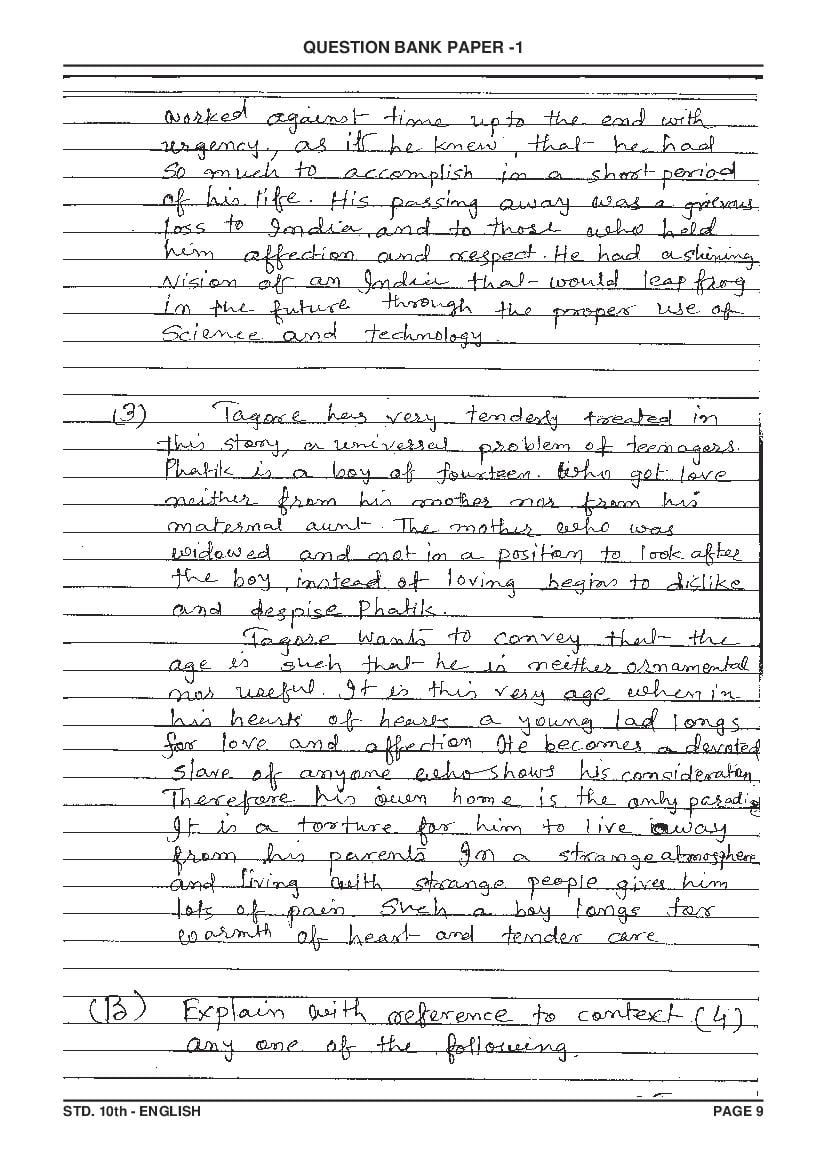 QUESTION BANK PAPER -1
worked against time upto the end with
urgency, as if he knew, that he had
So much to accomplish in a short period
of his life. His passing away was a grievous
loss to India, and to those who held
him affection and respect. He had a shining
Vision of an India that would leap frog
in the future through the proper use of
Science and technology
(3) Tagore has very tenderly treated in
this story, a universal problem of teenagers.
Phatik is a boy of fourteen. Who get love
neither from his mother nor from his
maternal aunt. The mother who was
widowed and not in a position to look after
the boy, instead of loving begins to dislike
and despise Phatik.
Tagore wants to convey that the
age is such that he is neither ornamental
nor useful. It is this very age when in
his hearts of hearts a young lad longs
for love and affection. He becomes a devoted
slave of anyone who shows his consideration
Therefore his own home is the only paradise
It is a torture for him to live away
from his parents In a strange atmosphere
and living with strange people gives him
lots of pain. Such a boy longs for
warmth of heart and tender care
(B) Explain with reference to context (4)
any one of the following.
STD. 10th - ENGLISH PAGE 9